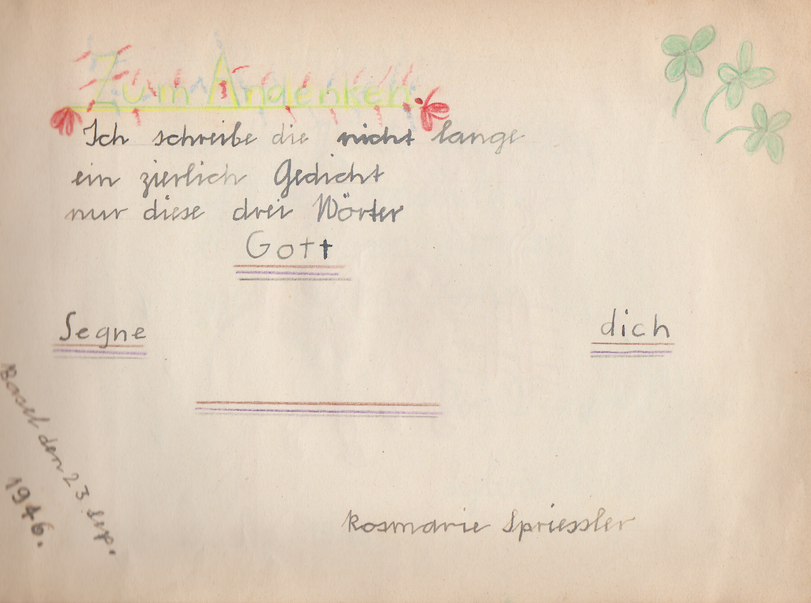 Zum Andenken
Ich schreibe die nicht lange
ein zierlich Gedicht
nur diese drei Wörter
Gott
Segne dich
Basel den 23 Sep.
1946.
Rosmarie Spriessler